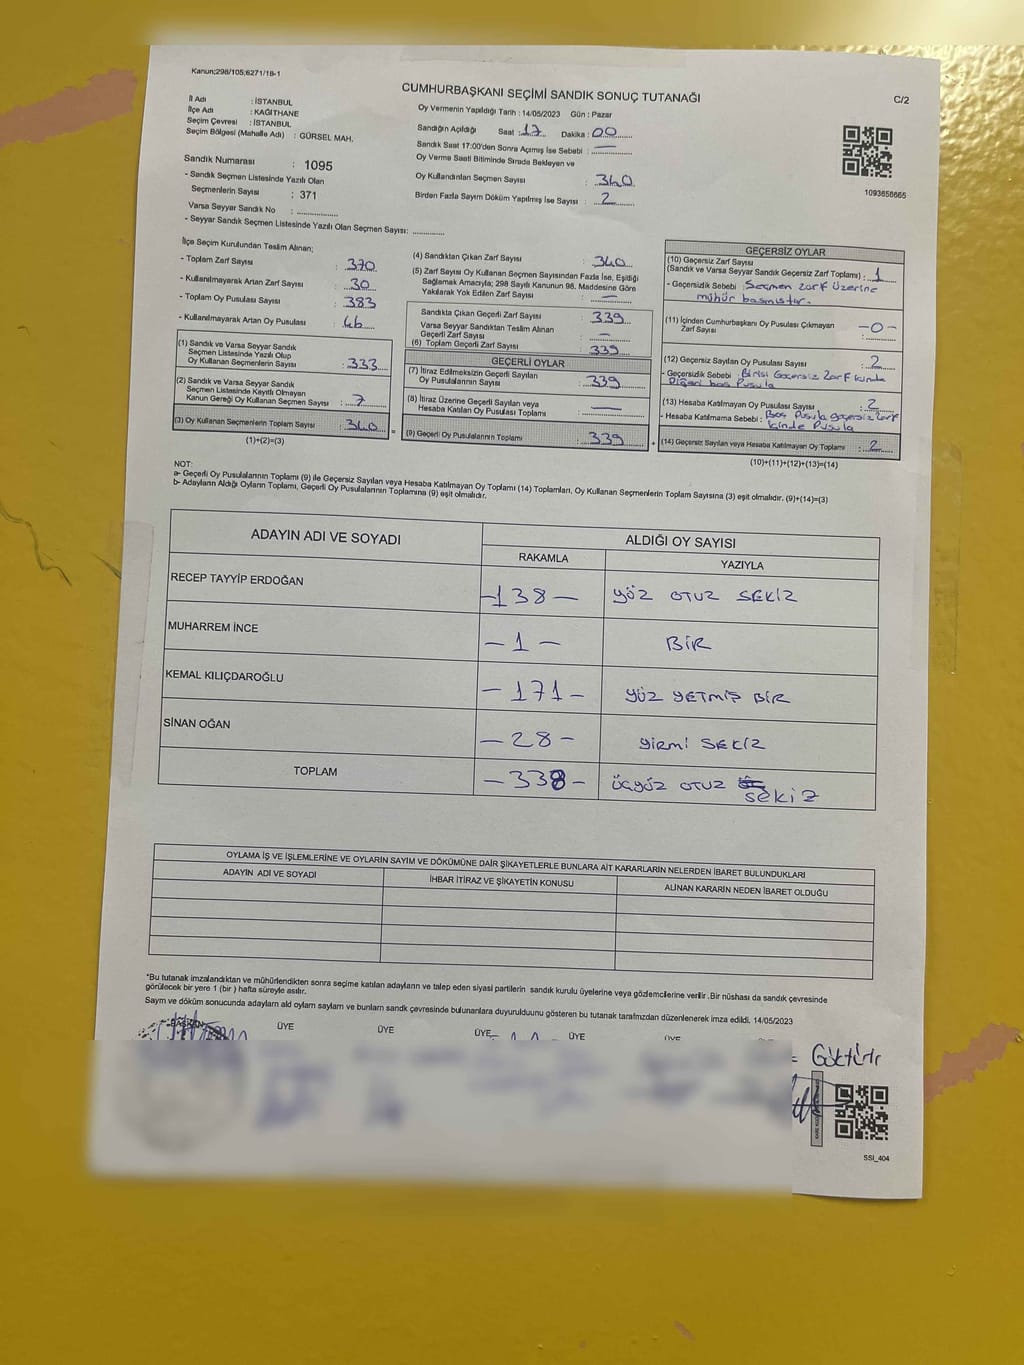 Kanun;298/105,6271/18-1
CUMHURBAŞKANI SEÇİMİ SANDIK SONUÇ TUTANAĞI
C/2
İl Adı : İSTANBUL
İlçe Adı : KAĞITHANE
Seçim Çevresi : İSTANBUL
Seçim Bölgesi (Mahalle Adı) : GÜRSEL MAH.
Oy Vermenin Yapıldığı Tarih : 14/05/2023 Gün : Pazar
Sandığın Açıldığı Saat : 17 Dakika : 00
Sandık Saat 17:00'den Sonra Açımış İse Sebebi : —
Oy Verme Saati Bitiminde Sırada Bekleyen ve
Oy Kullandırılan Seçmen Sayısı : 340
Birden Fazla Sayım Döküm Yapılmış İse Sayısı : 2
1093656665
Sandık Numarası : 1095
- Sandık Seçmen Listesinde Yazılı Olan
Seçmenlerin Sayısı : 371
Varsa Seyyar Sandık No : ..............
- Seyyar Sandık Seçmen Listesinde Yazılı Olan Seçmen Sayısı: ...........
İlçe Seçim Kurulundan Teslim Alınan;
- Toplam Zarf Sayısı : 370
- Kullanılmayarak Artan Zarf Sayısı : 30
- Toplam Oy Pusulası Sayısı : 383
- Kullanılmayarak Artan Oy Pusulası : 46
(1) Sandık ve Varsa Seyyar Sandık
Seçmen Listesinde Yazılı Olup
Oy Kullanan Seçmenlerin Sayısı : 333
(2) Sandık ve Varsa Seyyar Sandık
Seçmen Listesinde Kayıtlı Olmayan
Kanun Gereği Oy Kullanan Seçmen Sayısı : 7
(3) Oy Kullanan Seçmenlerin Toplam Sayısı : 340 =
(1)+(2)=(3)
(4) Sandıktan Çıkan Zarf Sayısı : 340
(5) Zarf Sayısı Oy Kullanan Seçmen Sayısından Fazla İse, Eşitliği
Sağlamak Amacıyla; 298 Sayılı Kanunun 98. Maddesine Göre
Yakılarak Yok Edilen Zarf Sayısı : —
Sandıkta Çıkan Geçerli Zarf Sayısı : 339
Varsa Seyyar Sandıktan Teslim Alınan
Geçerli Zarf Sayısı : —
(6) Toplam Geçerli Zarf Sayısı : 339
GEÇERLİ OYLAR
(7) İtiraz Edilmeksizin Geçerli Sayılan
Oy Pusulalarının Sayısı : 339
(8) İtiraz Üzerine Geçerli Sayılan veya
Hesaba Katılan Oy Pusulası Toplamı : —
(9) Geçerli Oy Pusulalarının Toplamı : 339 +
GEÇERSİZ OYLAR
(10) Geçersiz Zarf Sayısı
(Sandık ve Varsa Seyyar Sandık Geçersiz Zarf Toplamı) : 1
- Geçersizlik Sebebi : Seçmen zarf üzerine
mühür basmıştır.
(11) İçinden Cumhurbaşkanı Oy Pusulası Çıkmayan
Zarf Sayısı : —0—
(12) Geçersiz Sayılan Oy Pusulası Sayısı : 2
- Geçersizlik Sebebi : Birisi Geçersiz Zarf içinde
Diğeri boş Pusula
(13) Hesaba Katılmayan Oy Pusulası Sayısı : 2
- Hesaba Katılmama Sebebi : Boş Pusula geçersiz zarf
içinde Pusula
(14) Geçersiz Sayılan veya Hesaba Katılmayan Oy Toplamı : 2
(10)+(11)+(12)+(13)=(14)
NOT:
a- Geçerli Oy Pusulalarının Toplamı (9) ile Geçersiz Sayılan veya Hesaba Katılmayan Oy Toplamı (14) Toplamları, Oy Kullanan Seçmenlerin Toplam Sayısına (3) eşit olmalıdır. (9)+(14)=(3)
b- Adayların Aldığı Oyların Toplamı, Geçerli Oy Pusulalarının Toplamına (9) eşit olmalıdır.
ADAYIN ADI VE SOYADI
ALDIĞI OY SAYISI
RAKAMLA YAZIYLA
RECEP TAYYİP ERDOĞAN —138— YÜZ OTUZ SEKİZ
MUHARREM İNCE —1— BİR
KEMAL KILIÇDAROĞLU —171— YÜZ YETMİŞ BİR
SİNAN OĞAN —28— YİRMİ SEKİZ
TOPLAM —338— ÜÇYÜZ OTUZ sekiz
OYLAMA İŞ VE İŞLEMLERİNE VE OYLARIN SAYIM VE DÖKÜMÜNE DAİR ŞİKAYETLERLE BUNLARA AİT KARARLARIN NELERDEN İBARET BULUNDUKLARI
ADAYIN ADI VE SOYADI İHBAR İTİRAZ VE ŞİKAYETİN KONUSU ALINAN KARARIN NEDEN İBARET OLDUĞU
*Bu tutanak imzalandıktan ve mühürlendikten sonra seçime katılan adayların ve talep eden siyasi partilerin sandık kurulu üyelerine veya gözlemcilerine verilir. Bir nüshası da sandık çevresinde
görülecek bir yere 1 (bir ) hafta süreyle asılır.
Sayım ve döküm sonucunda adayların ald oyların sayılarn ve bunların sandık çevresinde bulunanlara duyurulduunu gösteren bu tutanak tarafmzdan düzenlenerek imza edildi. 14/05/2023
BAŞKAN ÜYE ÜYE ÜYE ÜYE ÜYE
Göktürk
SSI_404